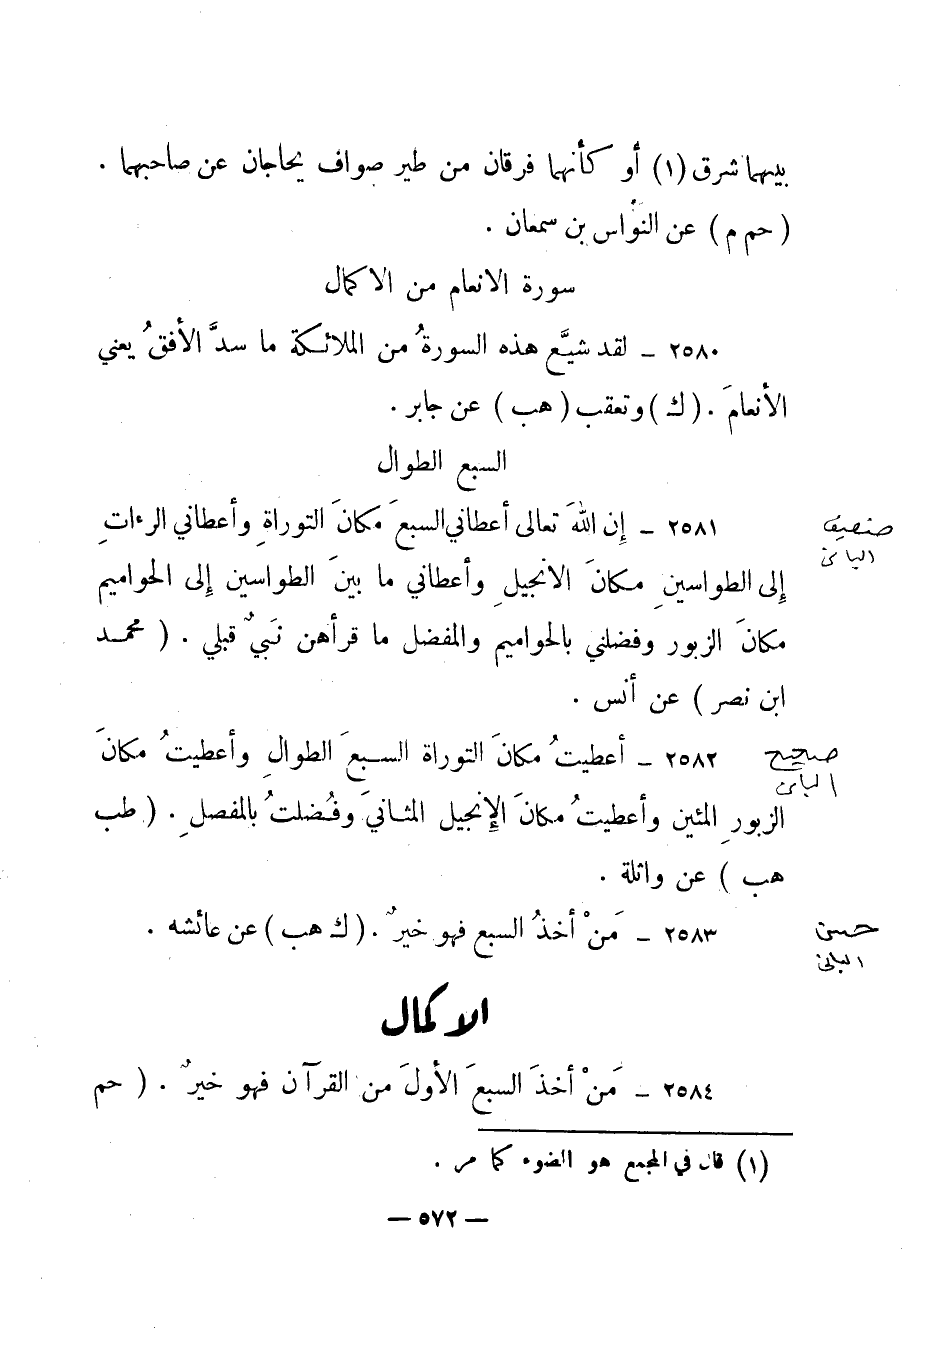 بينهما شرق (١) أو كأنهما فرقان من طير صواف يحاجان عن صاحبهما .
( حم م ) عن النوّاس بن سمعان .
سورة الانعام من الاكمال
٢٥٨٠ ـ لقد شيَّع هذه السورةُ من الملائكة ما سدَّ الأفقُ يعني
الأنعامَ . ( ك ) وتعقب ( هب ) عن جابر .
السبع الطوال
٢٥٨١ ـ إن اللهَ تعالى أعطاني السبعَ مكانَ التوراةِ وأعطاني الرءاتِ
إلى الطواسينِ مكانَ الانجيلِ وأعطاني ما بينَ الطواسين إلى الحواميم
مكانَ الزبور وفضلني بالحواميم والمفضل ما قرأهن نَبيٌ قبلي . ( محمد
ابن نصر ) عن أنس .
ضعيف
البانى
٢٥٨٢ ـ أعطيتُ مكانَ التوراة السبعَ الطوالِ وأعطيتُ مكانَ
الزبورِ المئين وأعطيتُ مكانَ الإنجيل المثانيَ وفُضلتُ بالمفصلِ . ( طب
هب ) عن واثلة .
صحيح
البانى
٢٥٨٣ ـ مَنْ أخذُ السبع فهو خيرٌ . ( ك هب ) عن عائشه .
حسن
البانى
الاكمال
٢٥٨٤ ـ مَنْ أخذَ السبعَ الأولَ من القرآن فهو خيرٌ . ( حم
(١) قال في المجمع هو الضوء كما مر .
— ٥٧٢ —